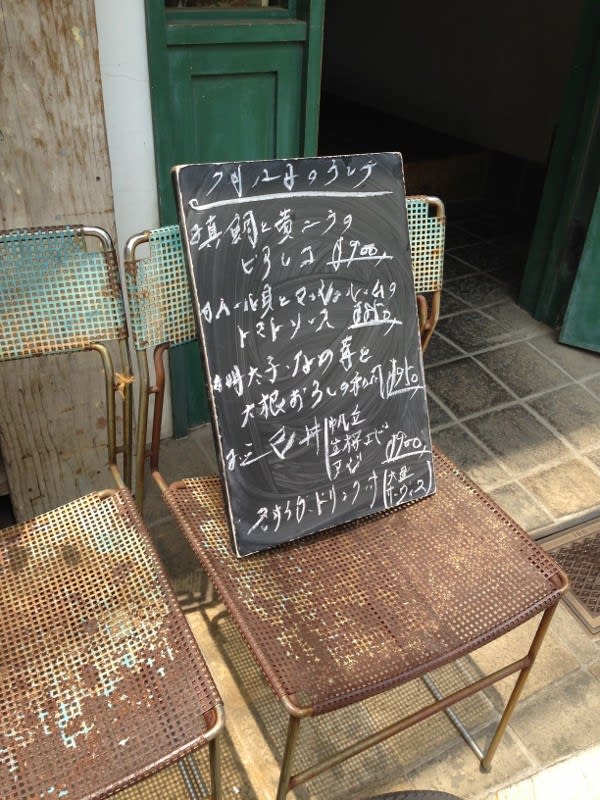 7月12日のランチ
真鯛と黄ニラの
¥900
ムール貝とマッシュルームの
トマトソース ¥850
明太子・なめ茸と
大根おろしの和風 ¥850
三色丼 帆立
生桜エビ
アジ ¥900
ドリンク付 大盛
サービス